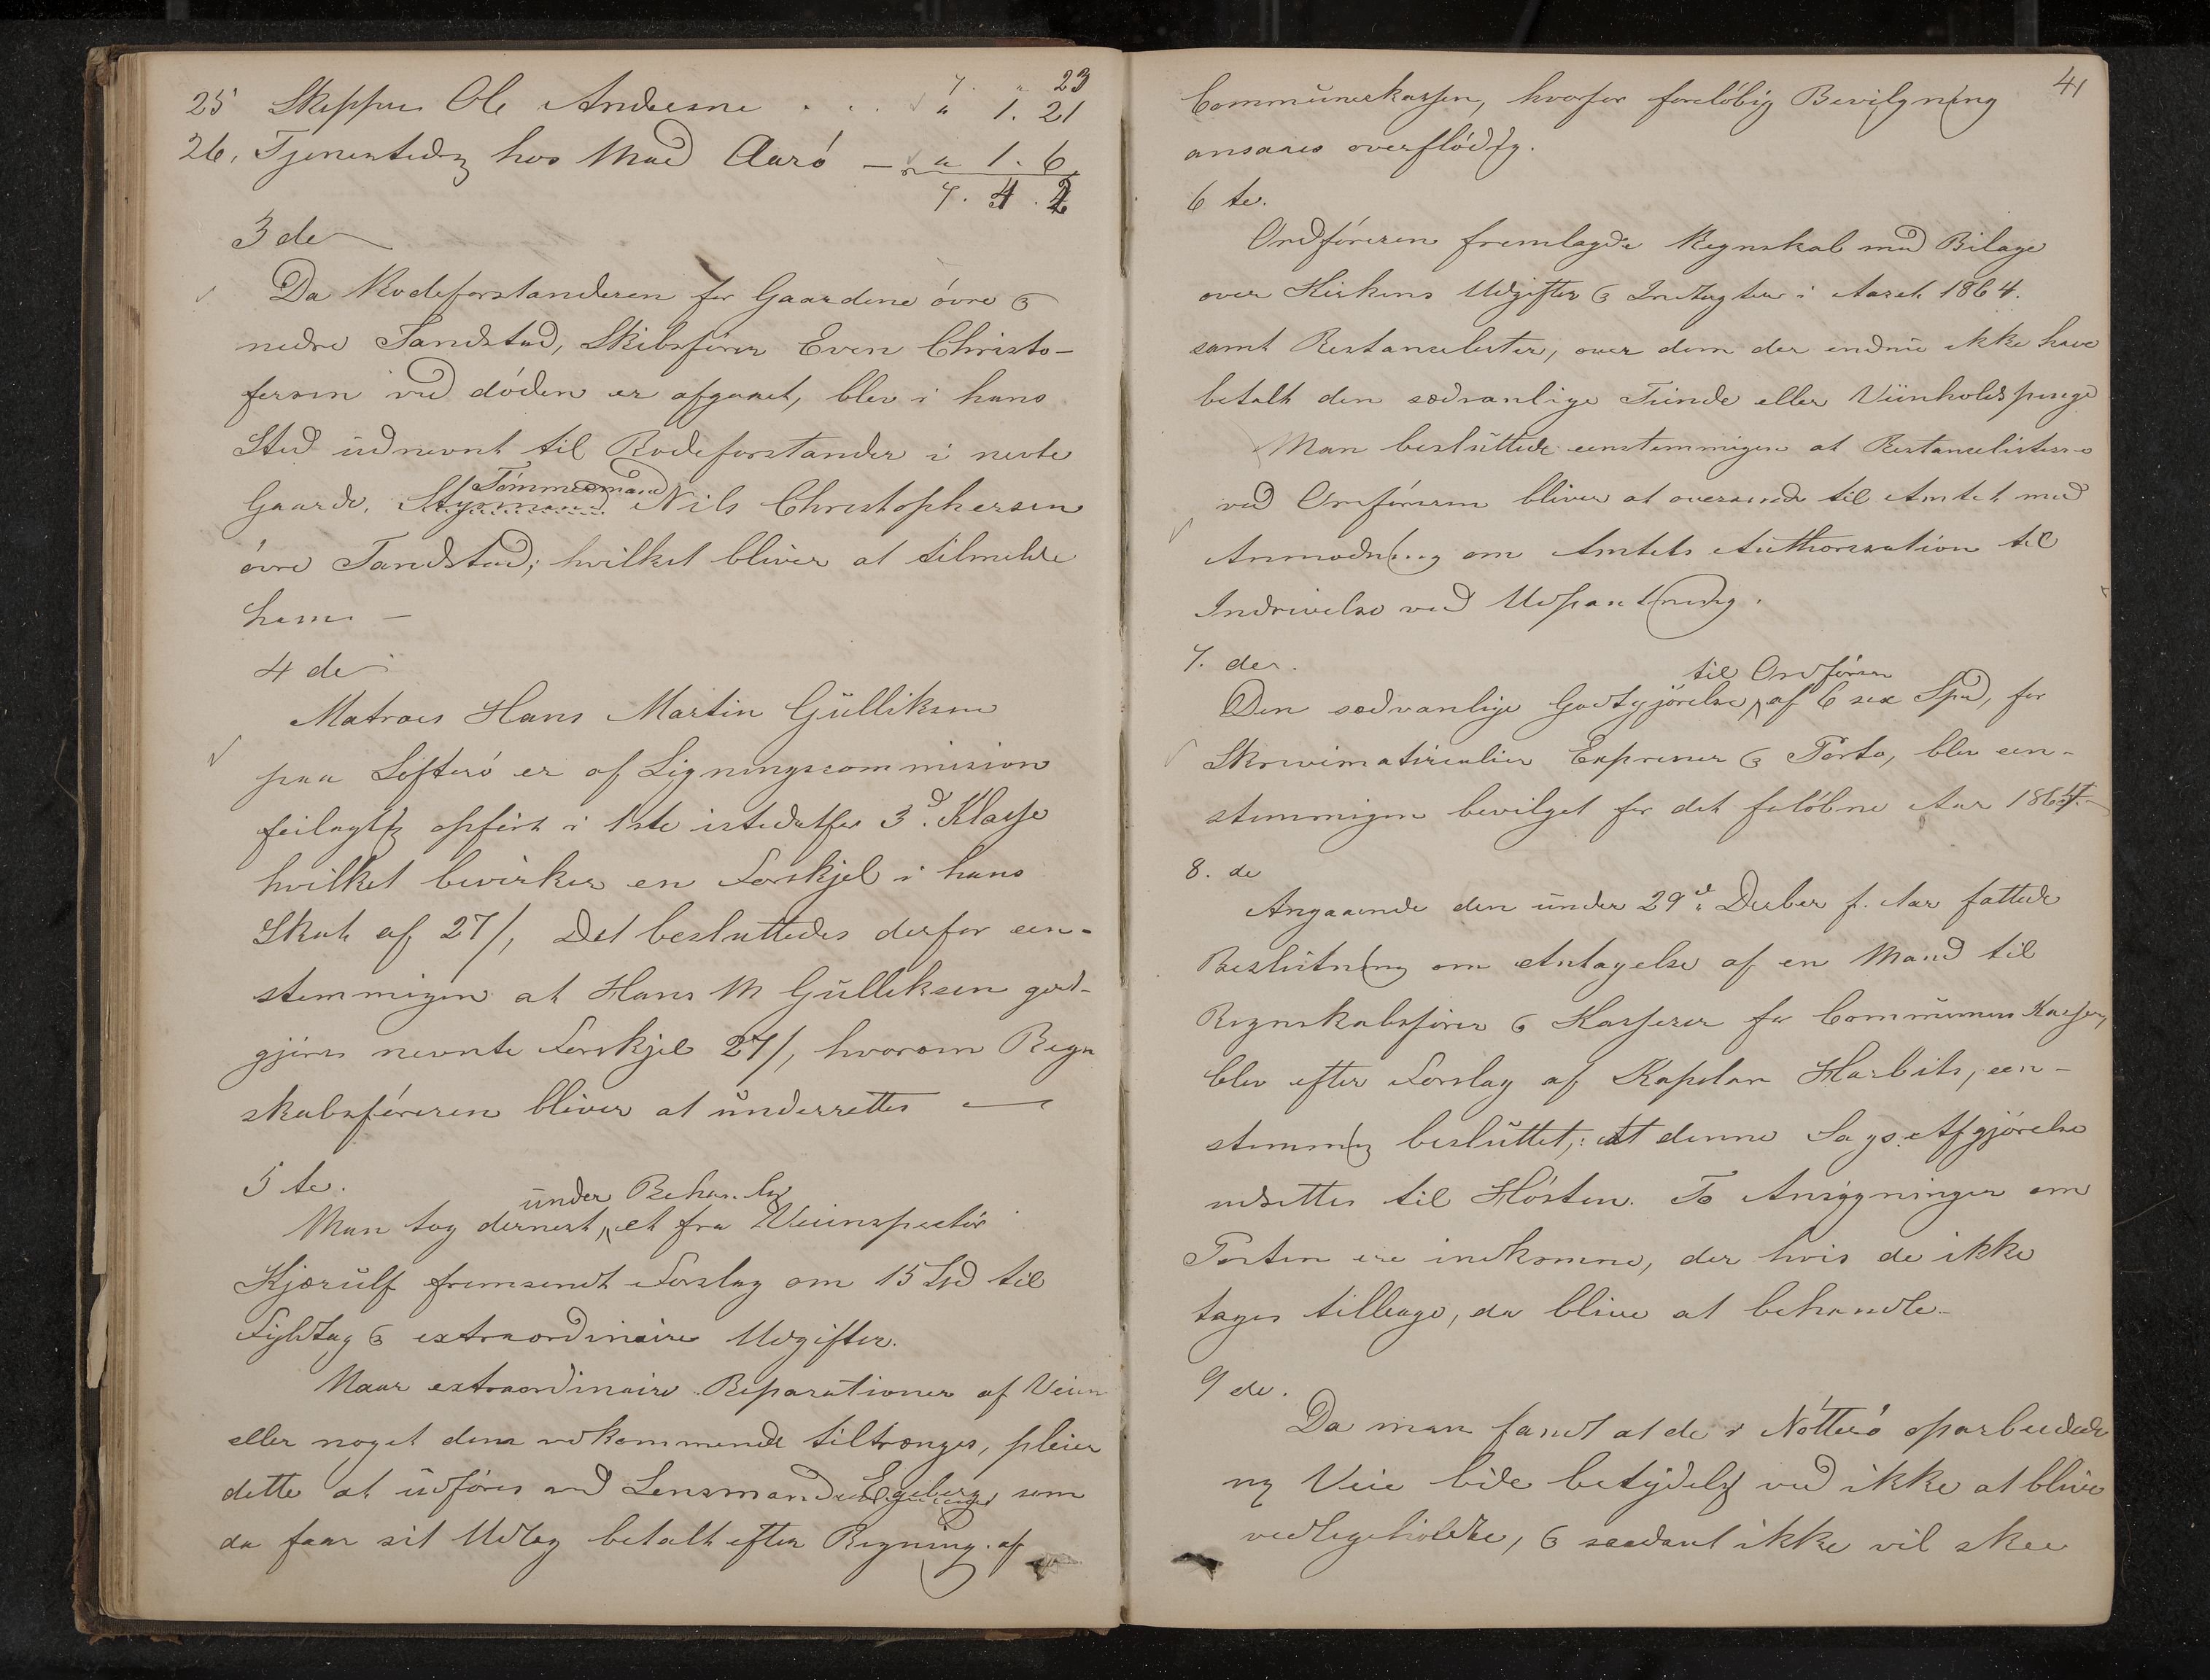 7. " 23
25 Skipper Ole Andersene . . . " 1. 21
26, Tjenestedr hos Mad Aarö — " 1. 6
7. 4. 2
3de
Da Rodeforstanderen for Gaardene övre &
nedre Tandstad, Skibsförer Even Christo-
fersen ved döden er afgaaet, blev i hans
Sted udnevnt til Rodeforstander i nevte
Tömmermand
Gaarde, Styrmand Nils Christophersen
övre Tandstad; hvilket bliver at tilmelde
ham. —
4de
Matros Hans Martin Gulliksen
paa Lofterö er af Ligningscommision
feilagtig opfört i 1ste istedetfor 3d. Klasse
hvilket bevirker en Forskjel i hans
Skat af 27/, Det besluttedes derfor een-
stemmigen at Hans M Gulliksen god-
gjöres nevnte Forskjel 27/, hvorom Regn
skabsföreren bliver at underrettes —
5te.
under Behandlg
Man tog dernest, et fra Veiinspectör
Kjerulf fremsendt Forslag om 15 Spd til
Fyldtag & extraordinaire Udgifter.
Naar extraordinaire Reparationer af Veien
eller noget dem vedkommende tiltrænges, pleier
dette at udföres ved Lensmand Egeberg, som
da faar sit Udlæg betalt efter Regning af
41
Communeskassen, hvorfor forelöbig Bevilgning
ansaaes overflödig.
6te.
Ordföreren fremlagde Regnskab med Bilage
over Kirkens Udgifter & Indtægter i Aaret 1864.
samt Restanselister, over dem der endnu ikke have
betalt den sædvanlige Tiende eller Viinholdspenge
Man besluttede eenstemmigen at Restancelisterne
ved Ordföreren bliver at oversende til Amtet med
Anmodning om Amtets Authorisation til
Inddrivelse ved Udpantning.
7. de.
til Ordförer
Den sædvanlige Godtgjörelse, af 6 sex Spd, for
Skrivimaterialier Expresser & Porto, blev een-
stemmigen bevilget for det forlöbne Aar 1864.
8. de
Angaaende den under 29d Decber f. Aar fattede
Beslutning om Antagelse af en Mand til
Regnskabsförer & Kasserer for Communens Kasser,
blev efter Forslag af Kapelan Harbits, een-
stemmig besluttet,: at denne Sags Afgjörelse
udsettes til Hösten. To Ansögninger om
Posten ere indkomne, der hvis de ikke
tages tilbage, da blive at behandle.
9de.
Da man fandt at de i Nötterö oparbeidede
ny Veie lide betydelig ved ikke at blive
vedligeholdte, & saadant ikke vil skee